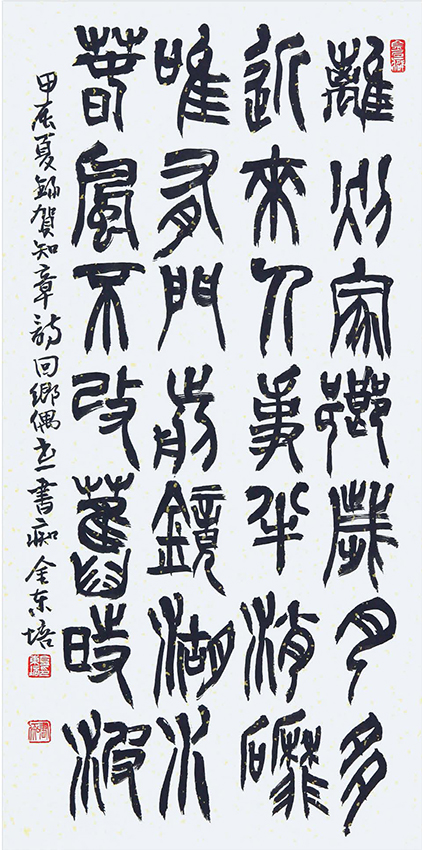 離別家鄉歲月多
近來人事半消磨
唯有門前鏡湖水
春風不改舊時波
甲辰夏錄賀知章詩回鄉偶书書痴金东培